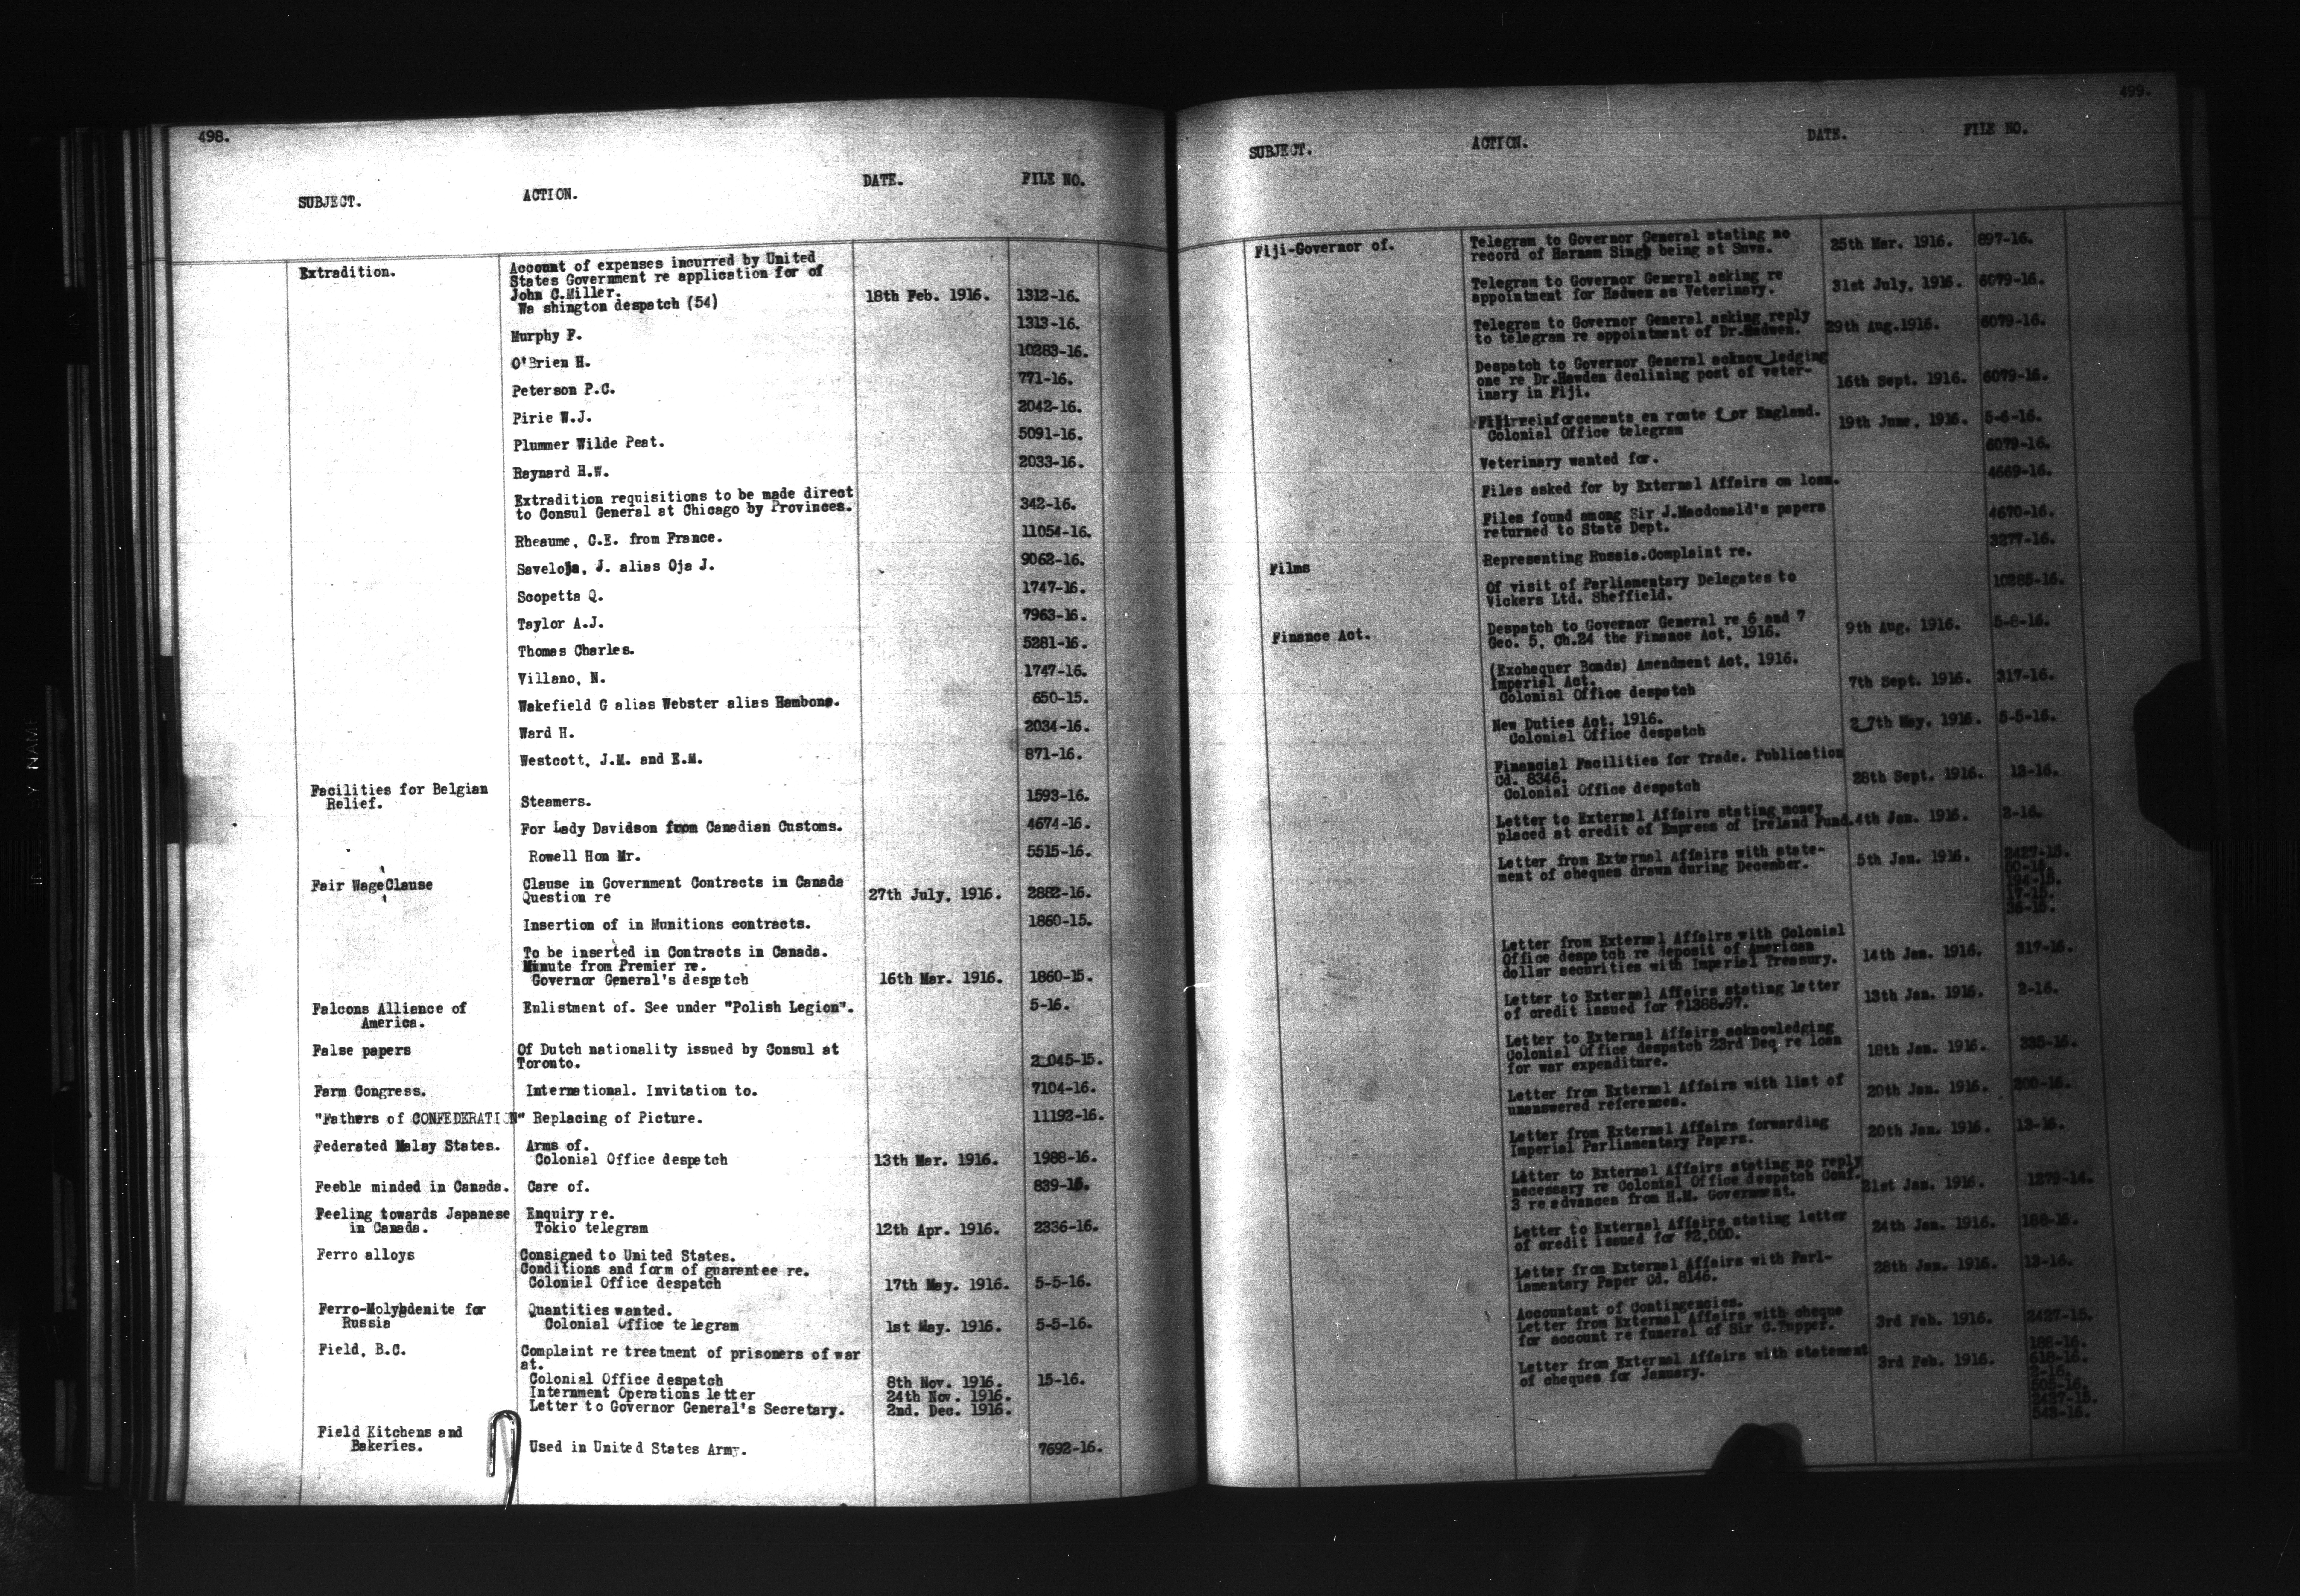 498.
SUBJECT. ACTION. DATE. FILE NO.
Extradition. Account of expenses incurred by United
States Government re application for of
John C.Miller.
Wa shington despatch (54) 18th Feb. 1916. 1312-16.
Murphy F. 1313-16.
O'Brien H. 10283-16.
Peterson P.C. 771-16.
Pirie W.J. 2042-16.
Plummer Wilde Peat. 5091-16.
Raynard H.W. 2033-16.
Extradition requisitions to be made direct
to Consul General at Chicago by Provinces. 342-16.
Rheaume, C.E. from France. 11054-16.
Saveloja, J. alias Oja J. 9062-16.
Scopetta Q. 1747-16.
Taylor A.J. 7963-16.
Thomas Charles. 5281-16.
Villano, N. 1747-16.
Wakefield G alias Webster alias Hambone. 650-15.
Ward H. 2034-16.
Westcott, J.M. and E.M. 871-16.
Facilities for Belgian
Relief. Steamers. 1593-16.
For Lady Davidson from Canadian Customs. 4674-16.
Rowell Hon Mr. 5515-16.
Fair WageClause Clause in Government Contracts in Canada
Question re 27th July, 1916. 2882-16.
Insertion of in Munitions contracts. 1860-15.
To be inserted in Contracts in Canada.
Minute from Premier re.
Governor General's despatch 16th Mar. 1916. 1860-15.
Falcons Alliance of Enlistment of. See under "Polish Legion". 5-16.
America.
False papers Of Dutch nationality issued by Consul at
Toronto. 2_045-15.
Farm Congress. International. Invitation to. 7104-16.
"Fathers of CONFEDERATION" Replacing of Picture. 11192-16.
Federated Malay States. Arms of.
Colonial Office despatch 13th Mar. 1916. 1988-16.
Feeble minded in Canada. Care of. 839-15.
Feeling towards Japanese Enquiry re.
in Canada. Tokio telegram 12th Apr. 1916. 2336-16.
Ferro alloys Consigned to United States.
Conditions and form of guarantee re.
Colonial Office despatch 17th May. 1916. 5-5-16.
Ferro-Molybdenite for Quantities wanted.
Russia Colonial Office te legram 1st May. 1916. 5-5-16.
Field, B.C. Complaint re treatment of prisoners of war
at.
Colonial Office despatch 8th Nov. 1916. 15-16.
Internment Operations letter 24th Nov. 1916.
Letter to Governor General's Secretary. 2nd. Dec. 1916.
Field Kitchens and
Bakeries. Used in United States Army. 7692-16.
499.
SUBJECT. ACTION. DATE. FILE NO.
Fiji-Governor of. Telegram to Governor General stating no
record of Harnam Singh being at Suva. 25th Mar. 1916. 897-16.
Telegram to Governor General asking re
appointment for Hadwen as Veterinary. 31st July, 1916. 6079-16.
Telegram to Governor General asking reply
to telegram re appointment of Dr.Hadwen. 29th Aug.1916. 6079-16.
Despatch to Governor General acknow_ledging
one re Dr.Hawden declining post of veter-
inary in Fiji. 16th Sept. 1916. 6079-16.
reinforcements en route f_or England.
Colonial Office telegram 19th June, 1916. 5-6-16.
Veterinary wanted for. 6079-16.
Files asked for by External Affairs on loan. 4669-16.
Files found among Sir J.Macdonald's papers
returned to State Dept. 4670-16.
Films Representing Russia.Complaint re. 3277-16.
Of visit of Parliamentary Delegates to
Vickers Ltd. Sheffield. 10285-16.
Finance Act. Despatch to Governor General re 6 and 7
Geo. 5, Ch.24 the Finance Act, 1916. 9th Aug. 1916. 5-8-16.
(Exchequer Bonds) Amendment Act, 1916.
Imperial Act.
Colonial Office despatch 7th Sept. 1916. 317-16.
New Duties Act. 1916.
Colonial Office despatch 2_7th May. 1916. 5-5-16.
Financial Facilities for Trade. Publication
Cd. 8346.
Colonial Office despatch 28th Sept. 1916. 13-16.
Letter to External Affairs stating money
placed at credit of Empress of Ireland Fund. 4th Jan. 1916. 2-16.
Letter from External Affairs with state-
ment of cheques drawn during December. 5th Jan. 1916. 2427-15.
50-15.
194-15.
17-15.
36-15.
Letter from External Affairs with Colonial
Office despatch re deposit of American
dollar securities with Imperial Treasury. 14th Jan. 1916. 317-16.
Letter to External Affairs stating letter
of credit issued for $1388.97. 13th Jan. 1916. 2-16.
Letter to External Affairs acknowledging
Colonial Office despatch 23rd Dec. re loan
for war expenditure. 18th Jan. 1916. 335-16.
Letter from External Affairs with list of
unanswered references. 20th Jan. 1916. 200-16.
Letter from External Affairs forwarding
Imperial Parliamentary Papers. 20th Jan. 1916. 13-16.
Letter to External Affairs stating no reply
necessary re Colonial Office despatch Conf.
3 re advances from H.M. Government. 21st Jan. 1916. 1279-14.
Letter to External Affairs stating letter
of credit issued for $2,000. 24th Jan. 1916. 188-16.
Letter from External Affairs with Parl-
iamentary Paper Cd. 8146. 28th Jan. 1916. 13-16.
Accountant of Contingencies.
Letter from External Affairs with cheque
for account re funeral of Sir C.Tupper. 3rd Feb. 1916. 2427-15.
Letter from External Affairs with statement
of cheques for January. 3rd Feb. 1916. 188-16.
618-16.
2-16.
2427-15.
543-16.